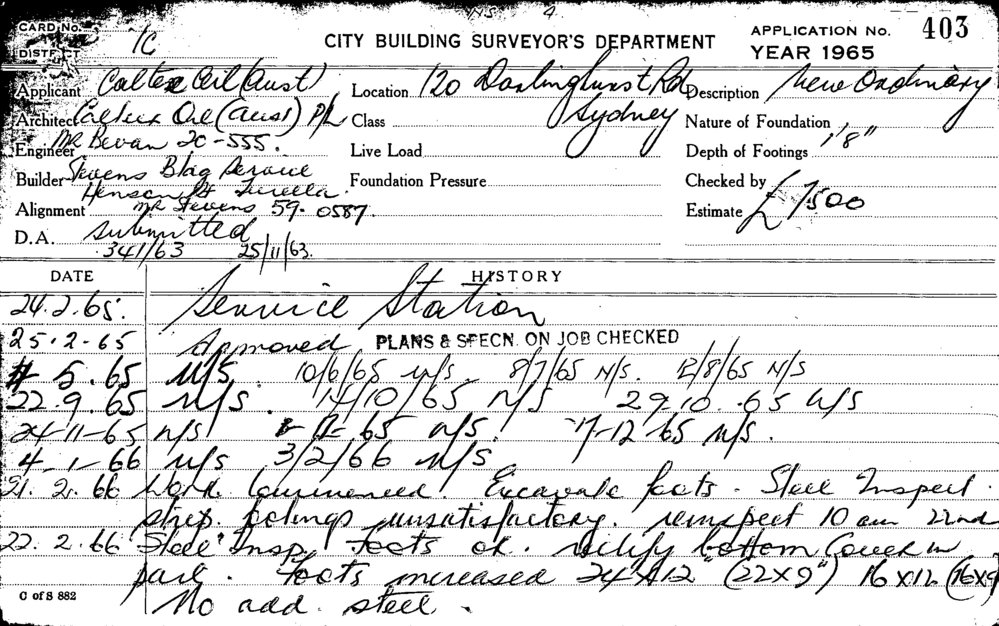 N/S 4.
CARD No. 1C
DISTRICT
CITY BUILDING SURVEYOR'S DEPARTMENT
APPLICATION No. 403
YEAR 1965
Applicant Caltex Oil (Aust) Location 120 Darlinghurst Rd Description New Ordinary
Architect Caltex Oil (Aust) P/L Class Sydney Nature of Foundation
Engineer Mr Bevan 20-555. Live Load Depth of Footings 1'8"
Builder Stevens Bldg Service Foundation Pressure Checked by
Henson St Turella.
Alignment Mr Stevens 59-0587. Estimate £7500
D.A. submitted
341/63 25/11/63.
DATE HISTORY
24.2.65. Service Station
25.2-65 Approved PLANS & SPECN. ON JOB CHECKED
5.65 N/S. 10/6/65 N/S. 8/7/65 N/S. 12/8/65 N/S
22.9.65 N/S. 14/10/65 N/S 29.10.65 N/S
24-11-65 N/S 65 N/S. 17-12-65 N/S.
4-1-66 N/S 3/2/66 N/S
21.2.66 Work Commenced. Excavate foots. Steel Inspect.
strip footings unsatisfactory. reinspect 10 am 22nd
22.2.66 "Steel" Insp. foots ok. rectify bottom Cover in
part. foots increased 24"x12" (22x9") 16x12 (16x9
No add. steel.
C of S 882